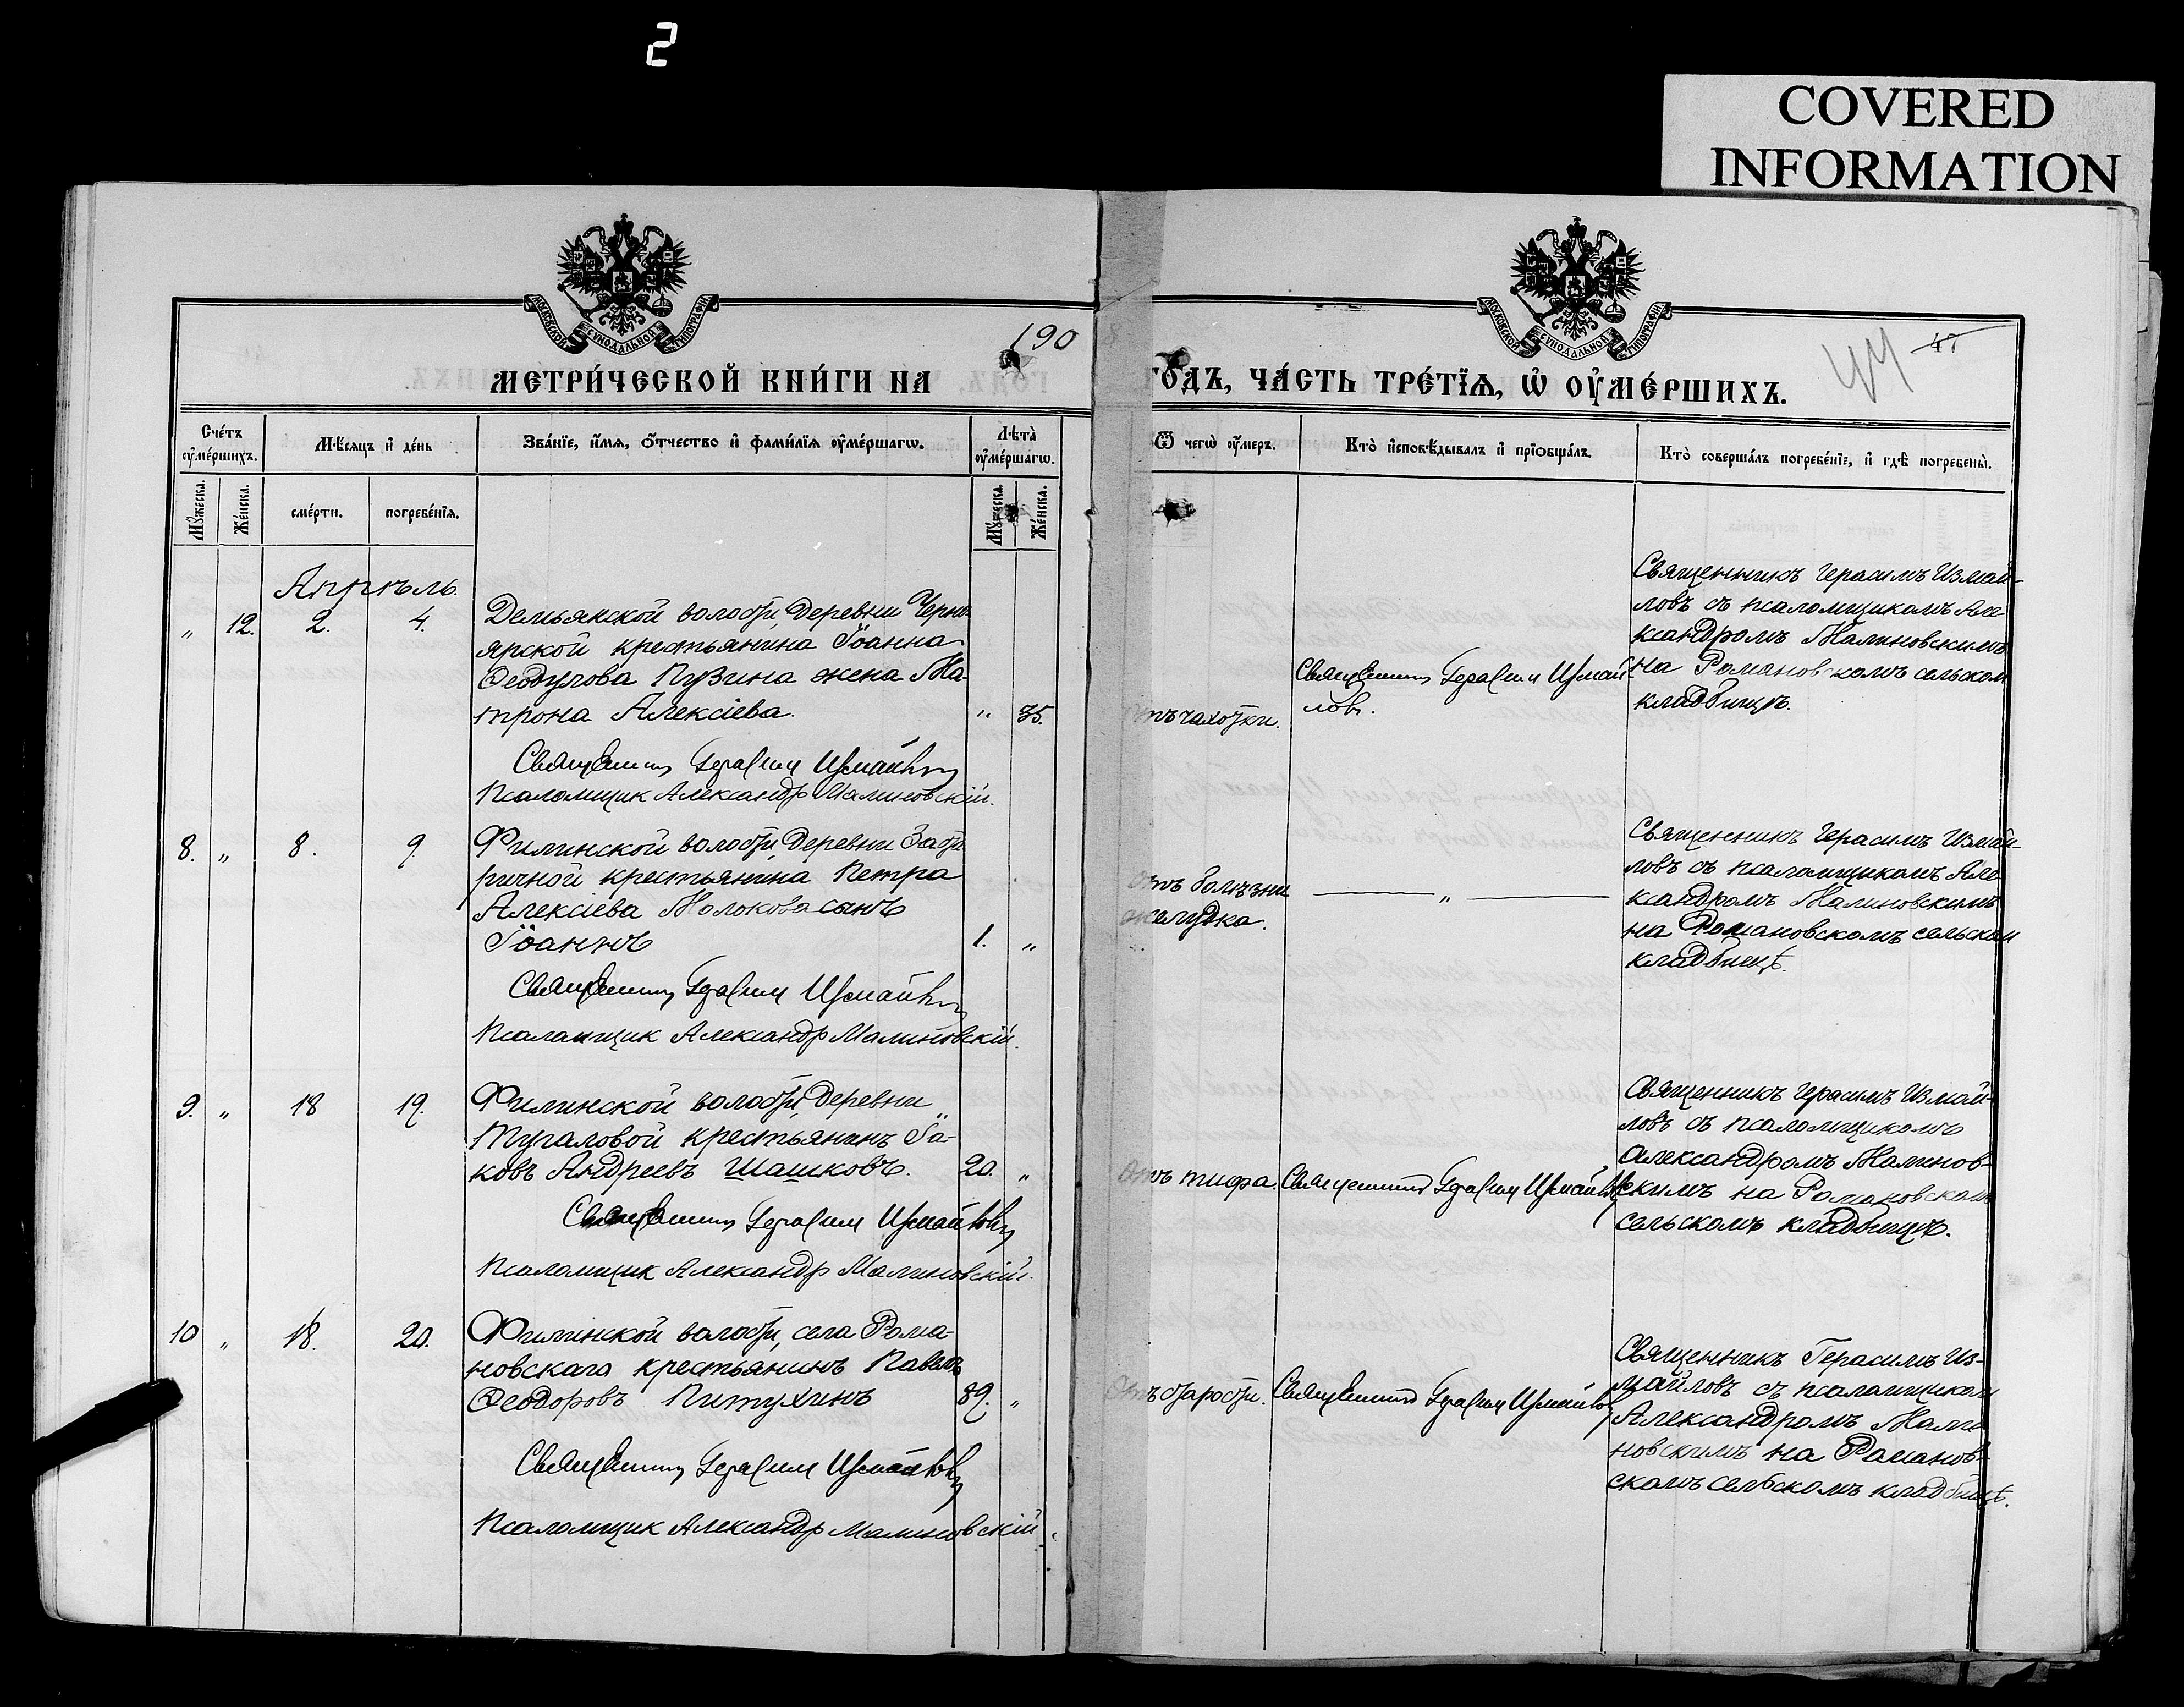 2
COVERED
INFORMATION
МОСКОВСКОЙ СѴНОДАЛЬНОЙ ТИПОГРАФІИ
МОСКОВСКОЙ СѴНОДАЛЬНОЙ ТИПОГРАФІИ
190
47
МЕТРИ́ЧЕСКОЙ КНИ́ГИ НА
ГОДЪ, ЧА́СТЬ ТРЕ́ТЇѦ, Ѡ҆ ОУ҆МЕ́РШИХЪ.
Сче́тъ оу҆ме́ршихъ.
Мѣ́сяцъ и҆ де́нь
Зва́нїе, и҆́мѧ, ѻ҆́тчество и҆ фами́лїѧ оу҆ме́ршагѡ.
Лѣта̀ оу҆ме́ршагѡ.
Ѿ чегѡ̀ оу҆́меръ.
Кто̀ и҆сповѣ́дывалъ и҆ прїѻбща́лъ.
Кто̀ соверша́лъ погребе́нїе, и҆ гдѣ̀ погребены̀.
Мꙋ́жеска.
Же́нска.
сме́рти.
погребе́нїѧ.
Мꙋ́жеска.
Же́нска.
Апрѣль.
„ 12. 2. 4.
Демьянской волости, деревни Черно-
ярской крестьянина Іоанна
Ѳеодулова Пузина жена Ма-
трона Алексіева. „ 35.
Священникъ Герасимъ Измайловъ
Псаломщик Александр Малиновскій.
Отъ чахотки.
Священникъ Герасимъ Измай-
ловъ.
Священникъ Герасимъ Измай-
ловъ съ псаломщикомъ Але-
ксандромъ Малиновскимъ
на Романовскомъ сельском
кладбищѣ.
8. „ 8. 9.
Филинской волости, деревни Засты-
ричной крестьянина Петра
Алексіева Молокова сынъ
Іоаннъ 1. „
Священникъ Герасимъ Измайловъ
Псаломщик Александр Малиновскій.
отъ болѣзни
желудка.
„
Священникъ Герасимъ Измай-
ловъ съ псаломщикомъ Але-
ксандромъ Малиновскимъ
на Романовскомъ сельском
кладбищѣ.
9. „ 18 19.
Филинской волости, деревни
Тугаловой крестьянинъ Іа-
ковъ Андреевъ Шашковъ. 20. „
Священникъ Герасимъ Измайловъ
Псаломщик Александр Малиновскій.
Отъ тифа.
Священникъ Герасимъ Измайловъ
Священникъ Герасимъ Измай-
ловъ съ псаломщикомъ
Александромъ Малинов-
скимъ на Романовском
сельскомъ кладбищѣ.
10 „ 18. 20.
Филинской волости, села Рома-
новскаго крестьянинъ Павелъ
Ѳеодоровъ Питухинъ 89. „
Священникъ Герасимъ Измайловъ
Псаломщик Александр Малиновскій.
Отъ старости.
Священникъ Герасимъ Измайловъ
Священникъ Герасимъ Из-
майловъ съ псаломщиком
Александромъ Мали-
новскимъ на Романов-
скомъ сельскомъ кладбищѣ.